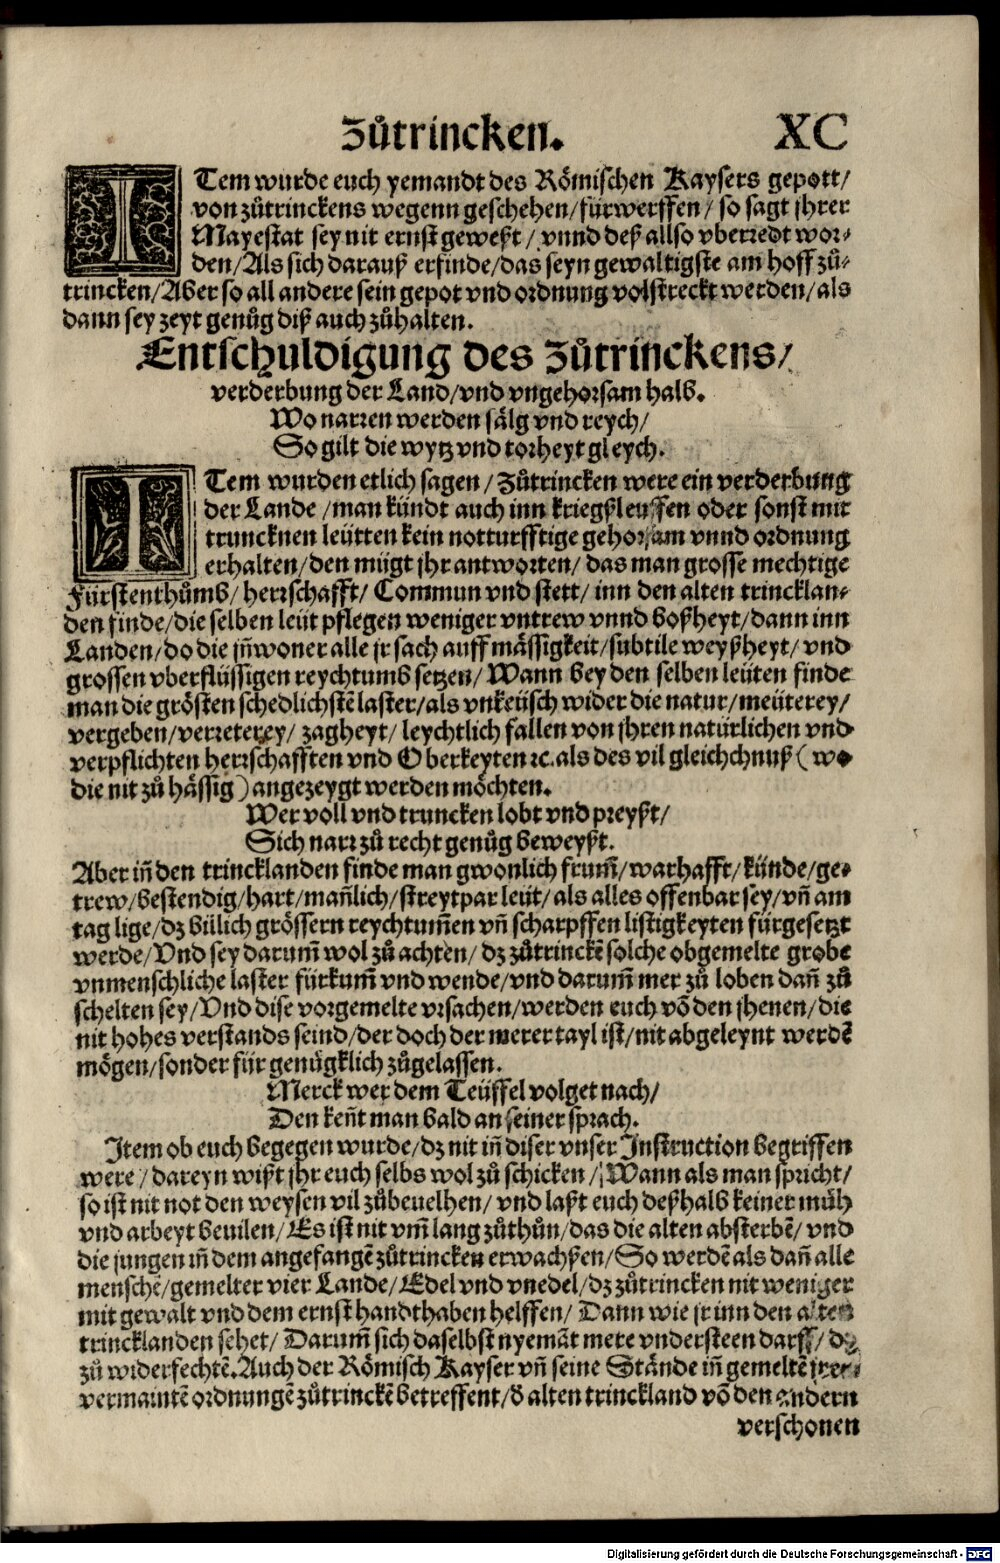 Zůtrincken. XC
ITem wurde euch yemandt des Römischen Kaysers gepott/
von zůtrinckens wegenn geschehen/fürwerffen/ so sagt jhrer
Mayestat sey nit ernst geweßt/ vnnd deß allso vberredt wor-
den/Als sich darauß erfinde/das seyn gewaltigste am hoff zů-
trincken/Aber so all andere sein gepot vnd ordnung volstreckt werden/als
dann sey zeyt genůg diß auch zůhalten.
Entschuldigung des Zůtrinckens/
verderbung der Land/vnd vngehorsam halb.
Wo narren werden sälg vnd reych/
So gilt die wytz vnd torheyt gleych.
ITem wurden etlich sagen/Zůtrincken were ein verderbung
der Lande/man kündt auch inn kriegßleuffen oder sonst mit
truncknen leütten kein notturfftige gehorsam vnnd ordnung
erhalten/den mügt jhr antworten/das man grosse mechtige
Fürstenthůmb/herrschafft/Commun vnd stett/inn den alten trincklan-
den finde/die selben leüt pflegen weniger vntrew vnnd boßheyt/dann inn
Landen/do die iñwoner alle jr sach auff mässigkeit/subtile weyßheyt/vnd
grossen vberflüssigen reychtumb setzen/Wann bey den selben leüten finde
man die grösten schedlichstē laster/als vnkeüsch wider die natur/meüterey/
vergeben/verreterey/zagheyt/leychtlich fallen von jhren natürlichen vnd
verpflichten herrschafften vnd Oberkeyten ꝛc.als des vil gleichchnuß(wo
die nit zů hässig)angezeygt werden möchten.
Wer voll vnd truncken lobt vnd preyßt/
Sich narr zů recht genůg beweyßt.
Aber iñ den trincklanden finde man gwonlich frum̃/warhafft/künde/ge-
trew/bestendig/hart/mañlich/streytpar leüt/als alles offenbar sey/vñ am
tag lige/dz bülich grössern reychtum̃en vñ scharpffen listigkeyten fürgesetzt
werde/Vnd sey darum̃ wol zů achten/dz zůtrinckē solche obgemelte grobe
vnmenschliche laster fürkum̃ vnd wende/vnd darum̃ mer zů loben dañ zů
schelten sey/Vnd dise vorgemelte vrsachen/werden euch vō den jhenen/die
nit hohes verstands seind/der doch der merer tayl ist/nit abgeleynt werdē
mögen/sonder für genügklich zůgelassen.
Merck wer dem Teüffel volget nach/
Den keñt man bald an seiner sprach.
Item ob euch begegen wurde/dz nit iñ diser vnser Instruction begriffen
were/dareyn wißt jhr euch selbs wol zů schicken/Wann als man spricht/
so ist nit not den weysen vil zůbeuelhen/vnd laßt euch deßhalb keiner müh
vnd arbeyt beuilen/Es ist nit vm̃ lang zůthůn/das die alten absterbē/vnd
die jungen iñ dem angefangē zůtrincken erwachßen/So werdē als dañ alle
menschē/gemelter vier Lande/Edel vnd vnedel/dz zůtrincken nit weniger
mit gewalt vnd dem ernst handthaben helffen/Dann wie jr inn den alten
trincklanden sehet/Darum̃ sich daselbst nyemāt mere vndersteen darff/dz
zů widerfechtē.Auch der Römisch Kayser vñ seine Stände iñ gemeltē jrer
vermaintē ordnungē zůtrinckē betreffent/d̄ alten trinckland vō den andern
verschonen
Digitalisierung gefördert durch die Deutsche Forschungsgemeinschaft - DFG